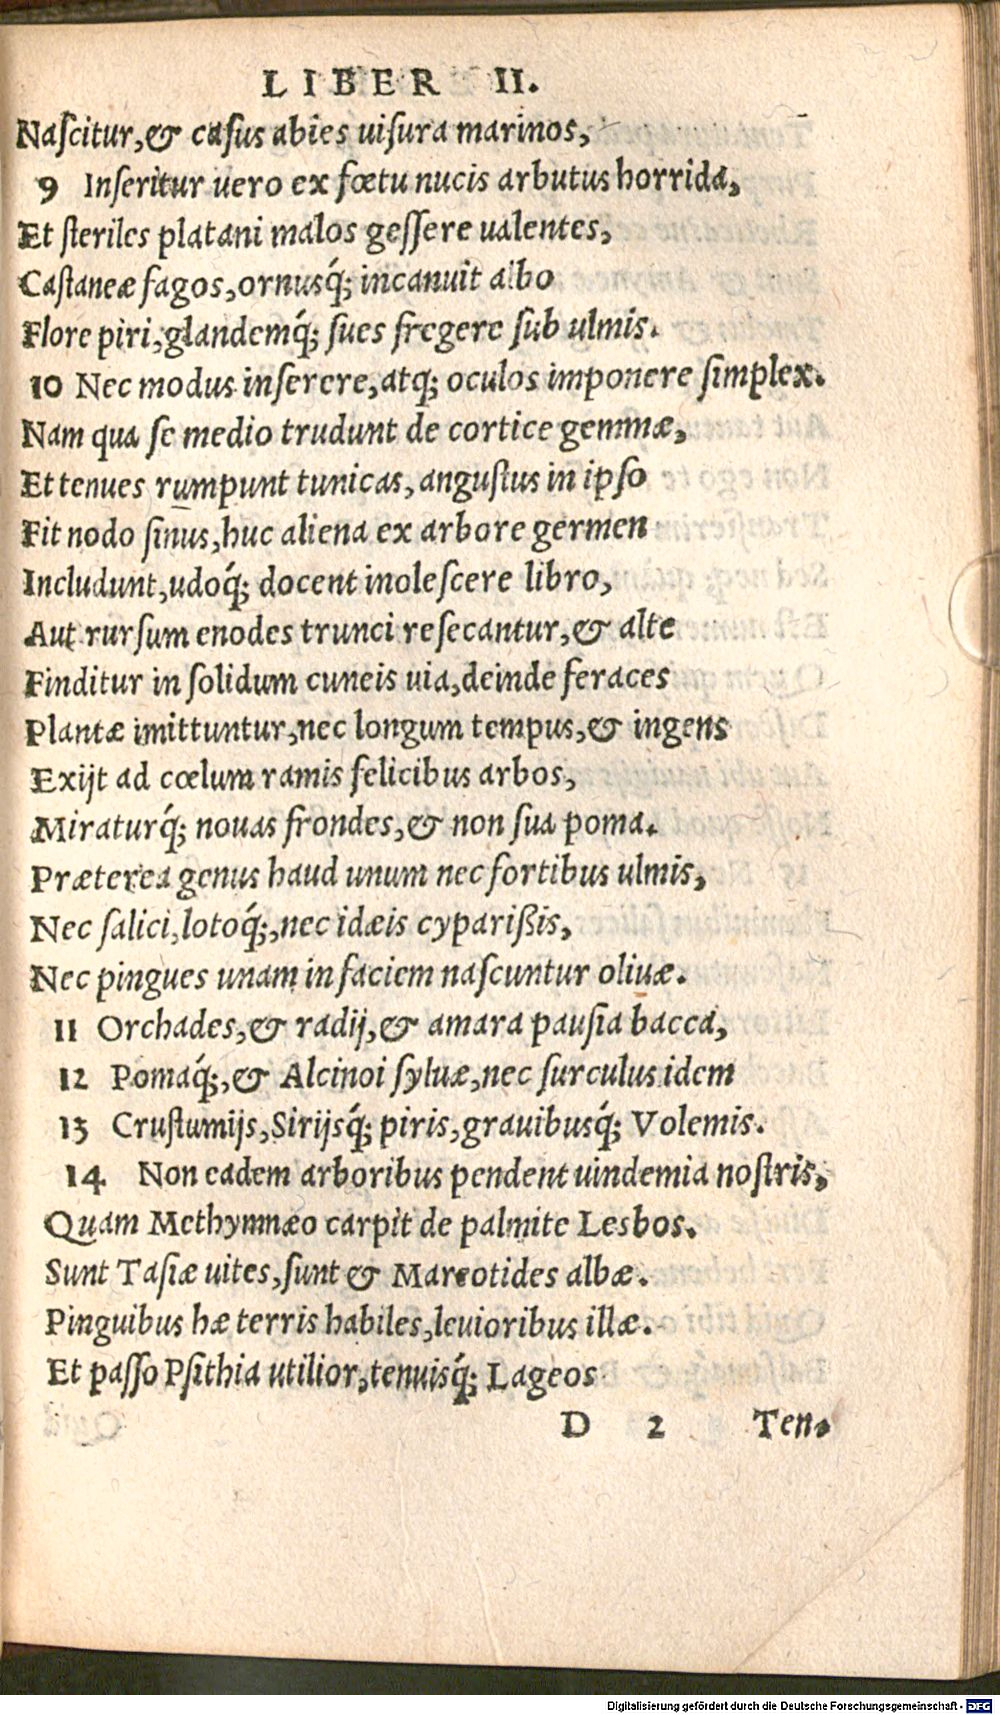 LIBER II.
Naſcitur,& caſus abies uiſura marinos,
9 Inſeritur uero ex fœtu nucis arbutus horrida,
Et ſteriles platani malos geſſere ualentes,
Caſtaneæ fagos,ornusq́; incanuit albo
Flore piri,glandemq́; ſues fregere ſub ulmis.
10 Nec modus inſerere,atq; oculos imponere ſimplex.
Nam qua ſe medio trudunt de cortice gemmæ,
Et tenues rumpunt tunicas,anguſtus in ipſo
Fit nodo ſinus,huc aliena ex arbore germen
Includunt,udoq́; docent inoleſcere libro,
Aut rurſum enodes trunci reſecantur,& alte
Finditur in ſolidum cuneis uia,deinde feraces
Plantæ imittuntur,nec longum tempus,& ingens
Exijt ad cœlum ramis felicibus arbos,
Miraturq́; nouas frondes,& non ſua poma.
Præterea genus haud unum nec fortibus ulmis,
Nec ſalici,lotoq́;,nec idæis cypariſsis,
Nec pingues unam in faciem naſcuntur oliuæ.
11 Orchades,& radij,& amara pauſia bacca,
12 Pomaq́;,& Alcinoi ſyluæ,nec ſurculus idem
13 Cruſtumijs,Sirijsq́; piris,grauibusq́; Volemis.
14 Non eadem arboribus pendent uindemia noſtris,
Quam Methymnæo carpit de palmite Lesbos.
Sunt Taſiæ uites,ſunt & Mareotides albæ.
Pinguibus hæ terris habiles,leuioribus illæ.
Et paſſo Pſithia utilior,tenuisq́; Lageos
D 2 Ten-
Digitalisierung gefördert durch die Deutsche Forschungsgemeinschaft - DFG